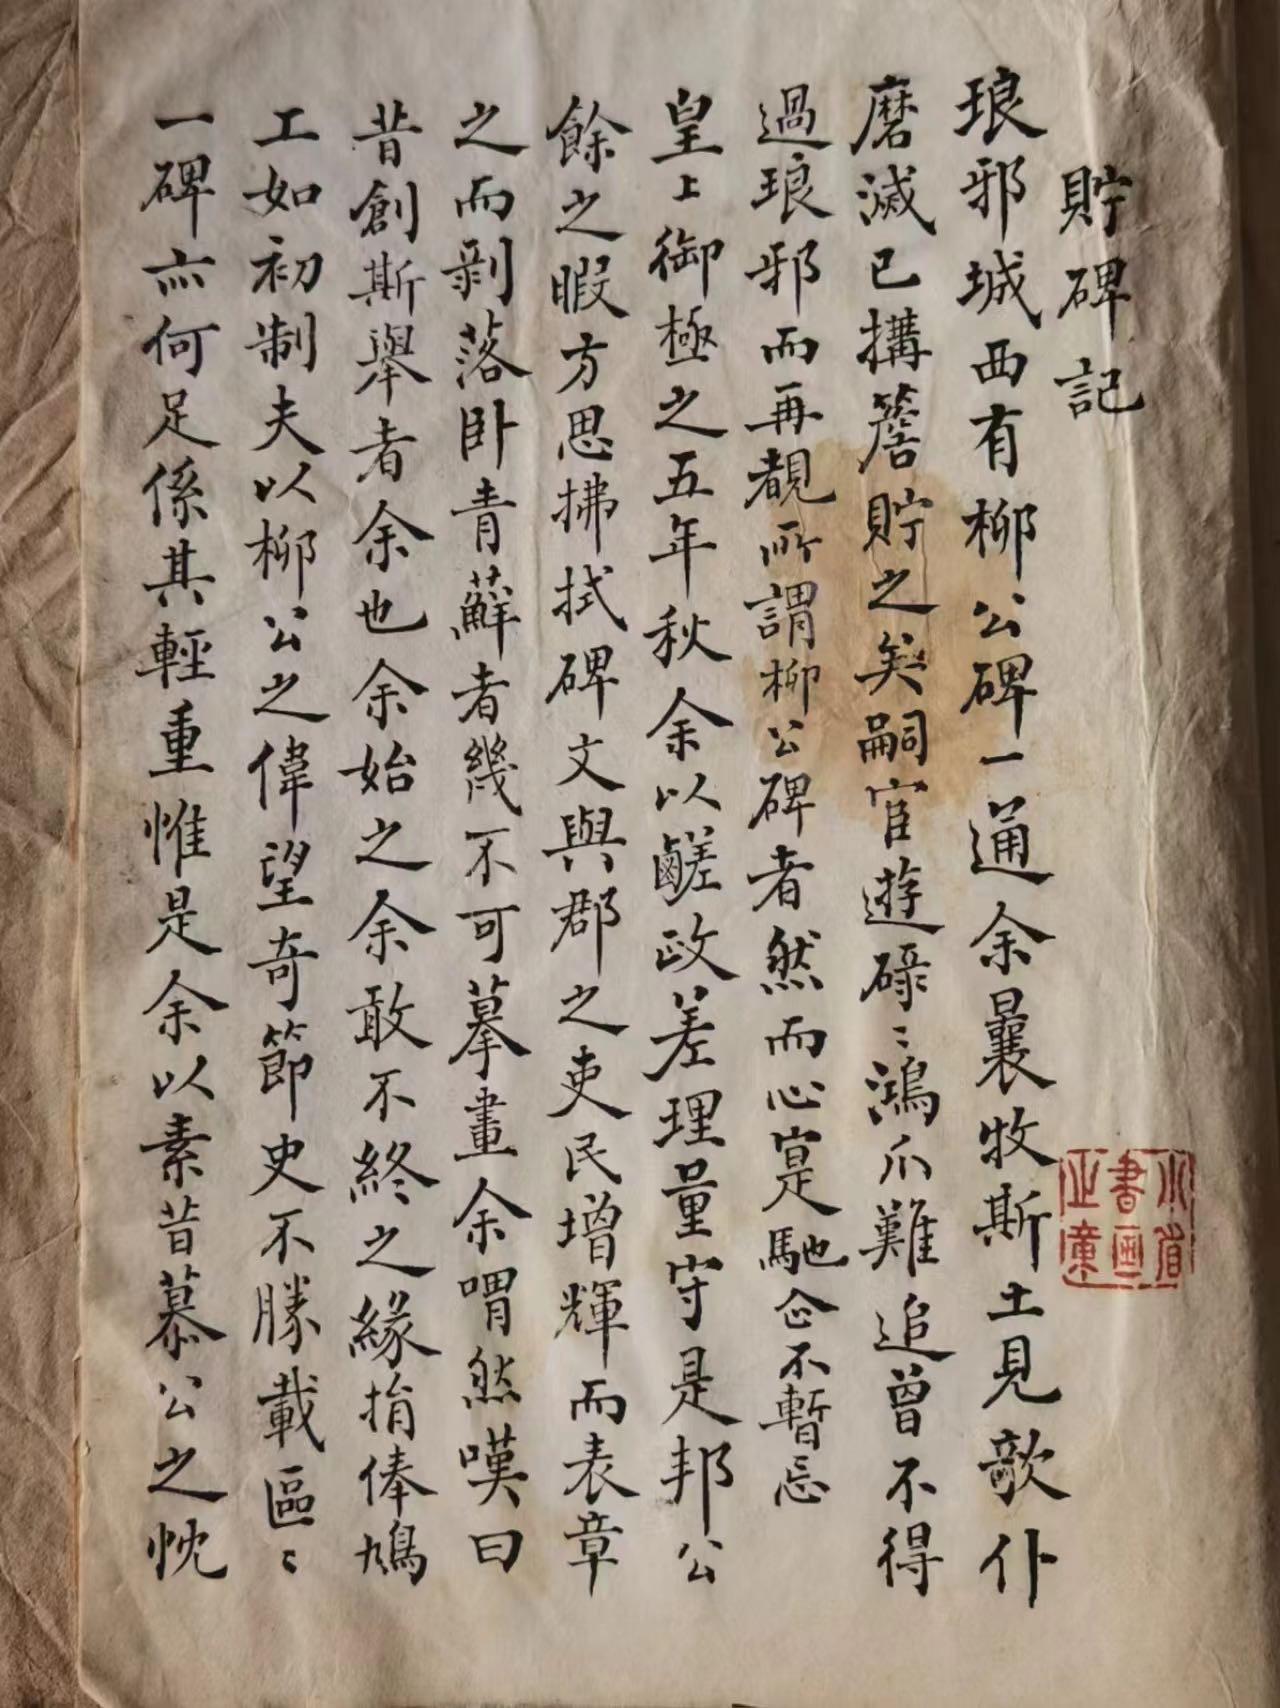 貯碑記
琅邪城西有柳公碑一通余曩牧斯土見欹仆
磨滅已搆簷貯之矣嗣宦遊碌〻鴻爪難追曾不得
過琅邪而再覩所謂柳公碑者然而心寔馳念不暫忘
皇上御極之五年秋余以鹺政差理量守是邦公
餘之暇方思拂拭碑文與郡之吏民增輝而表章
之而剥落卧青蘚者幾不可摹畫余喟然嘆曰
昔創斯舉者余也余始之余敢不終之緣捐俸鳩
工如初制夫以柳公之偉望奇節史不勝載區〻
一碑亦何足係其輕重惟是余以素昔慕公之忱
書画